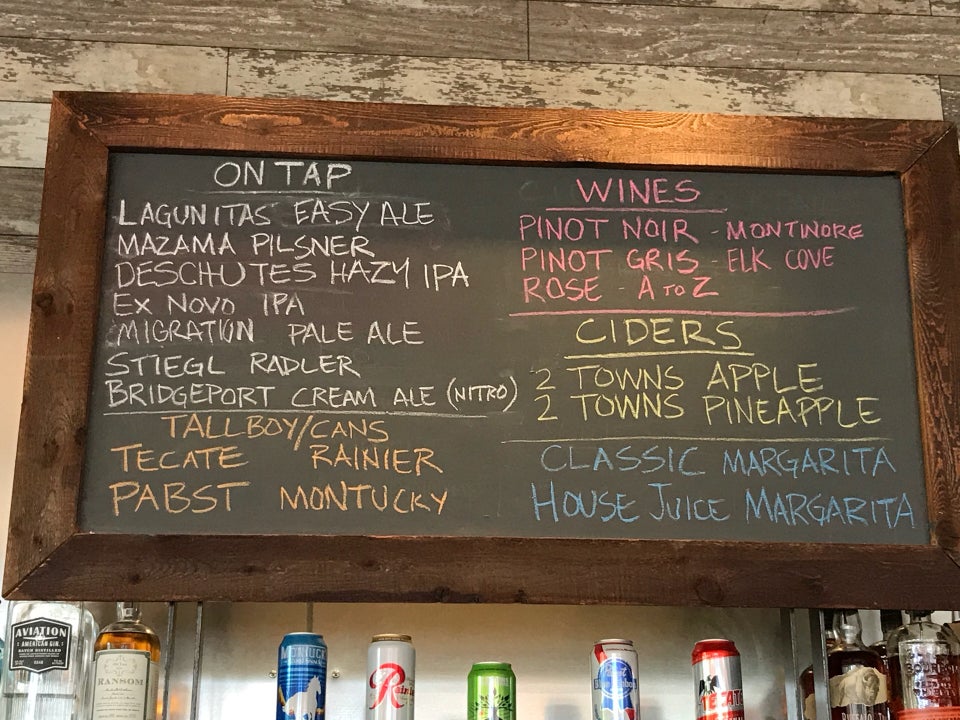 ON TAP
LAGUNITAS EASY ALE
MAZAMA PILSNER
DESCHUTES HAZY IPA
EX NOVO IPA
MIGRATION PALE ALE
STIEGL RADLER
BRIDGEPORT CREAM ALE (NITRO)
TALLBOY/CANS
TECATE RAINIER
PABST MONTUCKY
WINES
PINOT NOIR - MONTINORE
PINOT GRIS - ELK COVE
ROSE - A TO Z
CIDERS
2 TOWNS APPLE
2 TOWNS PINEAPPLE
CLASSIC MARGARITA
HOUSE JUICE MARGARITA
AVIATION
AMERICAN GIN
BATCH DISTILLED
RANSOM
Rain
TECATE
BOURBON